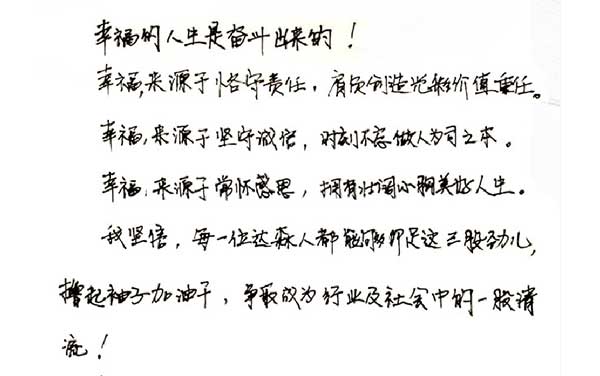 幸福的人生是奋斗出来的！
幸福，来源于恪守责任，肩负创造光彩价值重任。
幸福，来源于坚守诚信，时刻不忘做人为司之本。
幸福，来源于常怀感恩，拥有壮阔心胸美好人生。
我坚信，每一位达森人都能够铆足这三股劲儿，
撸起袖子加油干，争取成为行业及社会中的一股清
流！